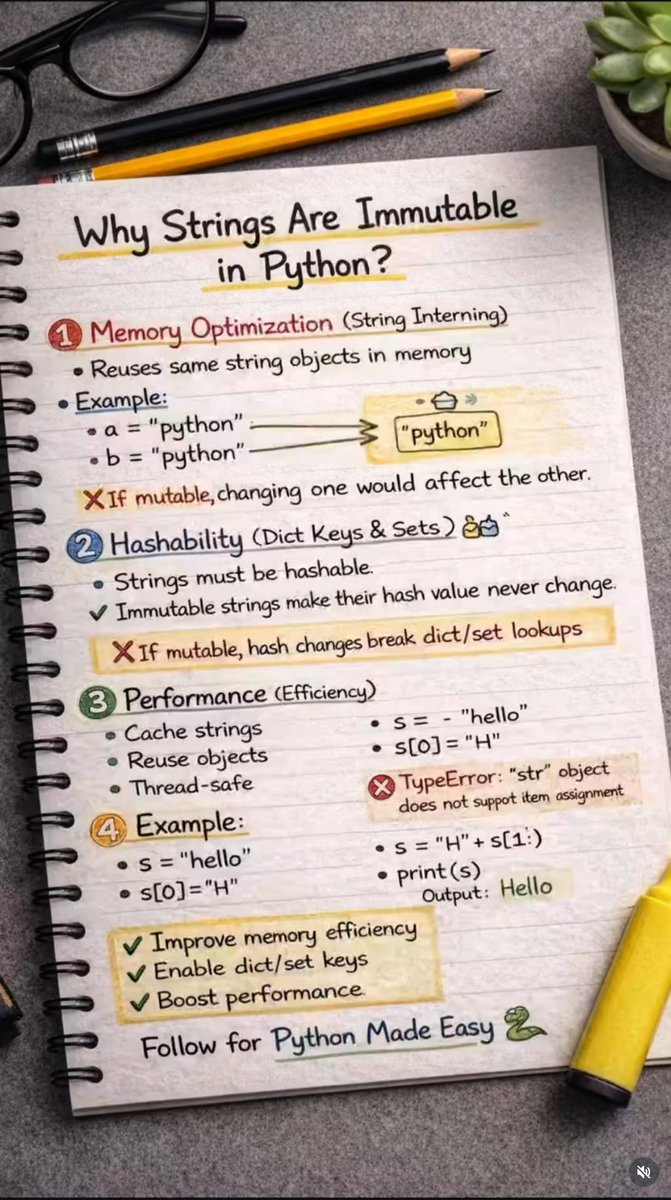 Why Strings Are Immutable
in Python?
1 Memory Optimization (String Interning)
• Reuses same string objects in memory
• Example:
• a = "python"
• b = "python"
"python"
❌ If mutable, changing one would affect the other.
2 Hashability (Dict Keys & Sets)
• Strings must be hashable.
✓ Immutable strings make their hash value never change.
❌ If mutable, hash changes break dict/set lookups
3 Performance (Efficiency)
• Cache strings
• Reuse objects
• Thread-safe
• s = - "hello"
• s[0] = "H"
❌ TypeError: "str" object
does not suppot item assignment
4 Example:
• s = "hello"
• s[0]="H"
• s = "H" + s[1:)
• print(s)
Output: Hello
✓ Improve memory efficiency
✓ Enable dict/set keys
✓ Boost performance.
Follow for Python Made Easy